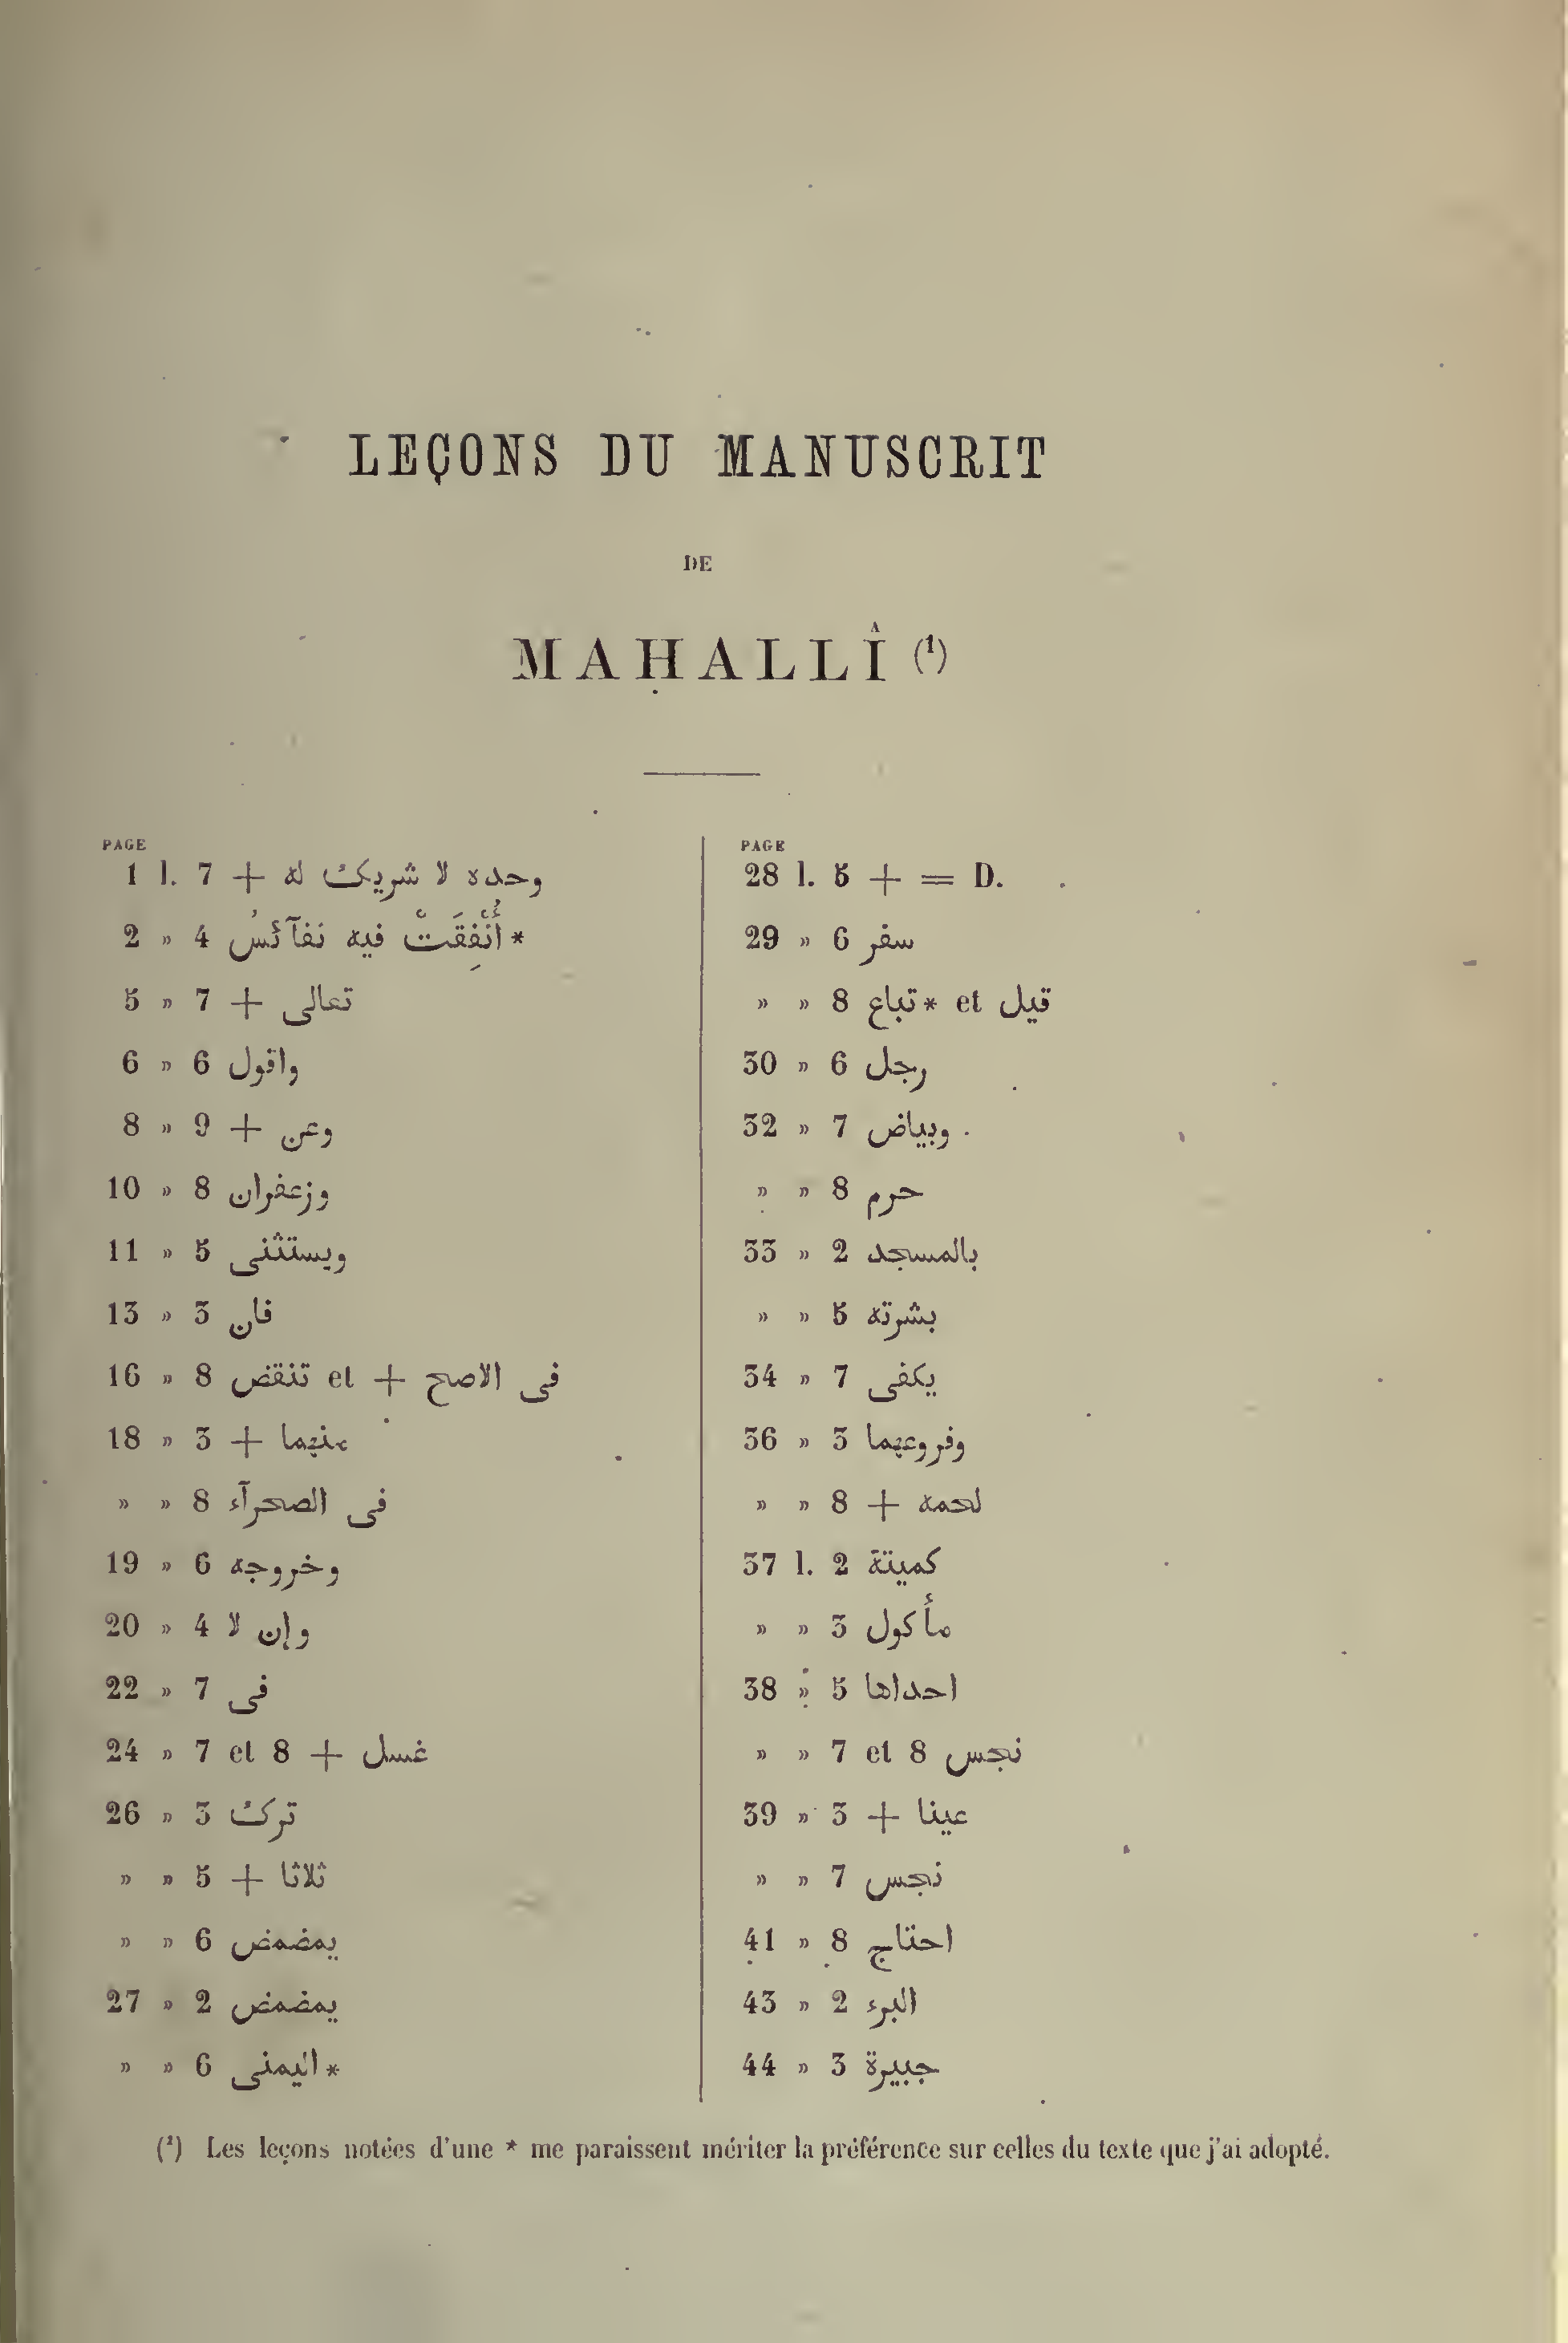 LEÇONS DU MANUSCRIT
DE
MAḤALLÎ (¹)
PAGE
1 l. 7 + وحده لا شريك له
2 » 4 أُنْفِقَتْ فيه نفآئسُ*
5 » 7 + تعالى
6 » 6 واقول
8 » 9 + وعن
10 » 8 وزعفران
11 » 5 ويستثنى
13 » 3 فان
16 » 8 تنقض et + فى الاصح
18 » 3 + عنهما
» » 8 فى الصحرآء
19 » 6 وخروجه
20 » 4 وإن لا
22 » 7 فى
24 » 7 et 8 + غسل
26 » 3 ترك
» » 5 + ثلاثا
» » 6 يمضمض
27 » 2 يمضمض
» » 6 اليمنى*
PAGE
28 l. 5 + = D.
29 » 6 سفر
» » 8 تباع* et قيل
30 » 6 رجل
32 » 7 وبياض
» » 8 حرم
33 » 2 بالمسجد
» » 5 بشرته
34 » 7 يكفى
36 » 3 وفروعهما
» » 8 + لحمه
37 l. 2 كميتة
» » 3 مأكول
38 » 5 احداها
» » 7 et 8 نجس
39 » 3 + عينا
» » 7 نجس
41 » 8 احتاج
43 » 2 البرء
44 » 3 جبيرة
(¹) Les leçons notées d'une * me paraissent mériter la préférence sur celles du texte que j'ai adopté.